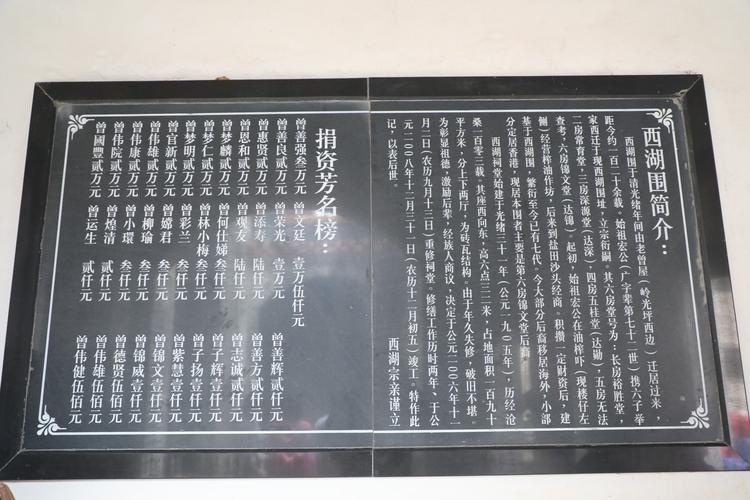 西湖围简介：
西湖围于清光绪年间由老曾屋（岭光坪西边）迁居过来，
距今约一百二十余载。始祖宏公（广字辈第七十二世）携六子举
家西迁于现西湖围址，立宗衍嗣。其六房堂号为：长房裕胜堂，
二房常育堂，三房深源堂（达深），四房五桂堂（达勋），五房无法
查考，六房锦文堂（达锦）。起初，始祖宏公在油榨吓（现楼仔左
侧）经营榨油作坊，后来到盐田沙头经商。积攒一定财资后，建
基于西湖围，繁衍至今已有七代。今大部分后裔移居海外，小部
分定居香港，现居本围者主要是第六房锦文堂后裔。
西湖祠堂始建于光绪三十一年（公元一九○五年），历经沧
桑一百零三载。其座西向东，高六点三二米，占地面积一百九十
平方米，分上下两厅，为砖瓦结构。由于年久失修，破旧不堪。
为彰显祖德，激励后辈，经族人商议，决定于公元二○○六年十一
月二日（农历九月十三日）重修祠堂。修缮工作历时两年、于公
元二○○八年十二月三十一日（农历十二月初五）竣工。特作此
记，以表后世。
西湖宗亲谨立
捐资芳名榜：
曾善强叁万元 曾文廷 壹万伍仟元
曾善良贰万元 曾荣光 壹万元 曾善辉贰仟元
曾惠贤贰万元 曾添寿 陆仟元 曾善方贰仟元
曾恩和贰万元 曾观友 陆仟元 曾志诚贰仟元
曾梦麟贰万元 曾何仕娣 叁仟元 曾子辉壹仟元
曾梦仁贰万元 曾林小梅 叁仟元 曾子扬壹仟元
曾梦明贰万元 曾彩兰 叁仟元 曾紫慧壹仟元
曾官新贰万元 曾嫦君 叁仟元 曾锦文壹仟元
曾伟雄贰万元 曾柳瑜 叁仟元 曾锦威壹仟元
曾伟康贰万元 曾小環 叁仟元 曾德贤伍佰元
曾伟院贰万元 曾煌清 叁仟元 曾伟雄伍佰元
曾國豐贰万元 曾运生 贰仟元 曾伟健伍佰元